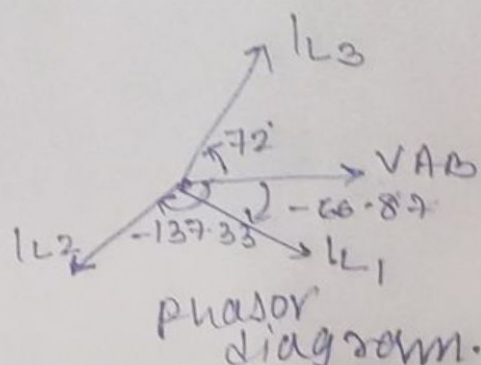 IL3
72°
VAB
-66.87
-137.33
IL2
IL1
phasor
diagram.